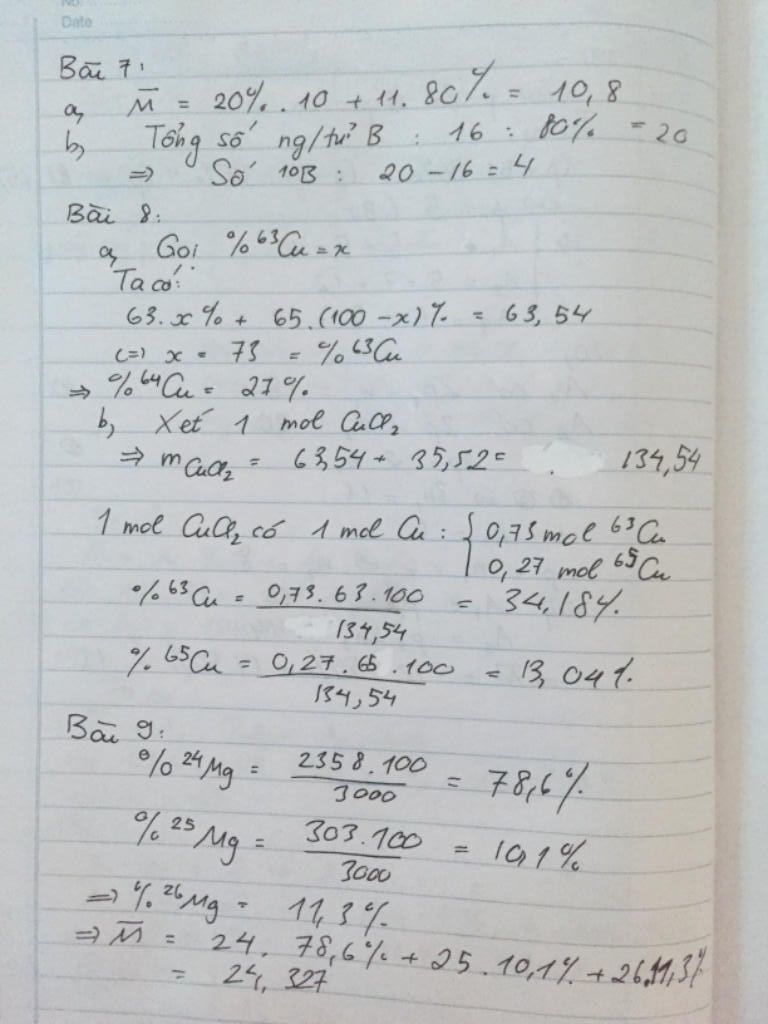 No.
Date
Bài 7:
a, M̅ = 20%. 10 + 11. 80% = 10,8
b, Tổng số ng/tử B : 16 : 80% = 20
⇒ Số ¹⁰B : 20 - 16 = 4
Bài 8:
a, Gọi % ⁶³Cu = x
Ta có:
63. x% + 65. (100 - x)% = 63,54
<=> x = 73 = % ⁶³Cu
⇒ % ⁶⁴Cu = 27%
b, Xét 1 mol CuCl₂
⇒ m CuCl₂ = 63,54 + 35,52 = 134,54
1 mol CuCl₂ có 1 mol Cu : { 0,73 mol ⁶³Cu
0,27 mol ⁶⁵Cu
% ⁶³Cu = 0,73. 63. 100 / 134,54 = 34,18%
% ⁶⁵Cu = 0,27. 65. 100 / 134,54 = 13,04%
Bài 9:
% ²⁴Mg = 2358. 100 / 3000 = 78,6%
% ²⁵Mg = 303. 100 / 3000 = 10,1%
⇒ % ²⁶Mg = 11,3%
⇒ M̅ = 24. 78,6% + 25. 10,1% + 26. 11,3%
= 24,327